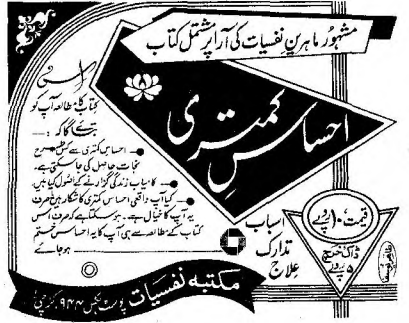 مشہور ماہرینِ نفسیات کی آرا پر مشتمل کتاب
احساسِ کمتری
اس
کتاب کا مطالعہ آپ کو
بتائے گا کہ :—
احساسِ کمتری سے کس طرح
نجات حاصل کی جا سکتی ہے۔
کامیاب زندگی گزارنے کے اصول کیا ہیں۔
کیا آپ واقعی احساسِ کمتری کا شکار ہیں یا صرف
یہ آپ کا خیال ہے۔ ہو سکتا ہے کہ صرف اس
کتاب کے مطالعہ سے ہی آپ کا یہ احساس ختم
ہو جائے
اسباب
تدارک
علاج
قیمت ۱۰ روپے
ڈاک خرچ
۵ روپے
مکتبہ نفسیات پوسٹ بکس ۹۴۴ کراچی